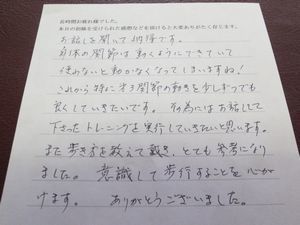 長時間お疲れ様でした。
本日の施術を受けられた感想などを頂けると大変ありがたく存じます。
お話しを聞いて納得です。
身体の関節は動くようにできていて
使わないと動かなくなってしまいますね!
これから特に才3関節の動きを少しずつでも
良くしていきたいです。その為にはお話しして
下さったトレーニングを実行していきたいと思います。
また歩き方を教えて戴き、とても参考になり
ました。意識して歩行することを心が
けます。 ありがとうございました。